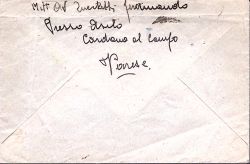 Mitt Ord Zucchetti Ferdinando
Presso Asilo
Cardano al Campo
Varese.